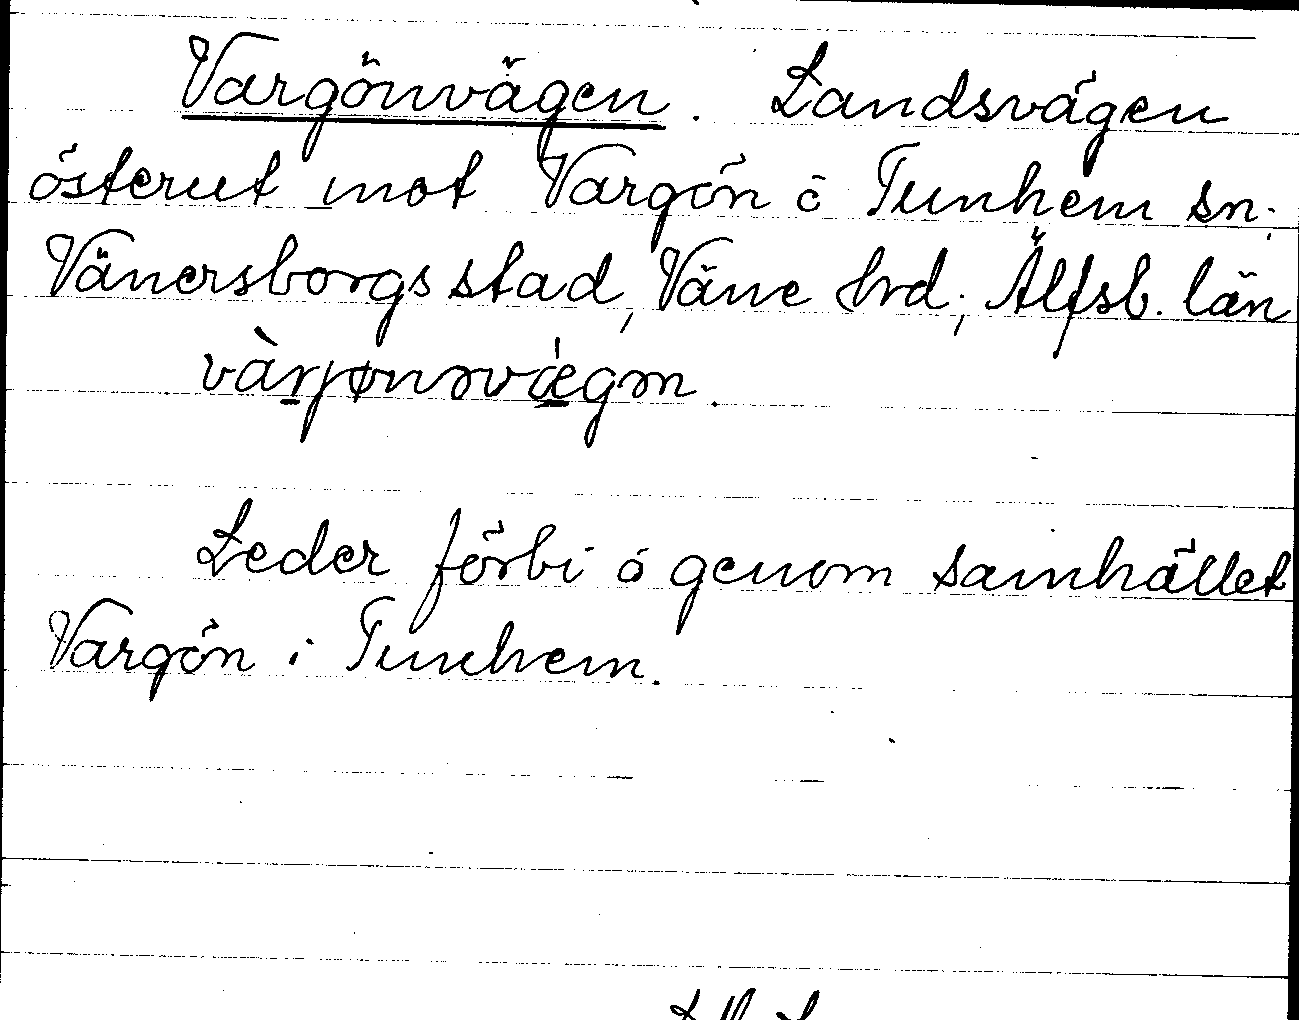 Vargönvägen. Landsvägen
österut mot Vargön å Tunhem sn.
Vänersborgs stad, Väne hrd; Älfsb. län
vàrjønɜvǽgɜn.
Leder förbi å genom samhället
Vargön i Tunhem.